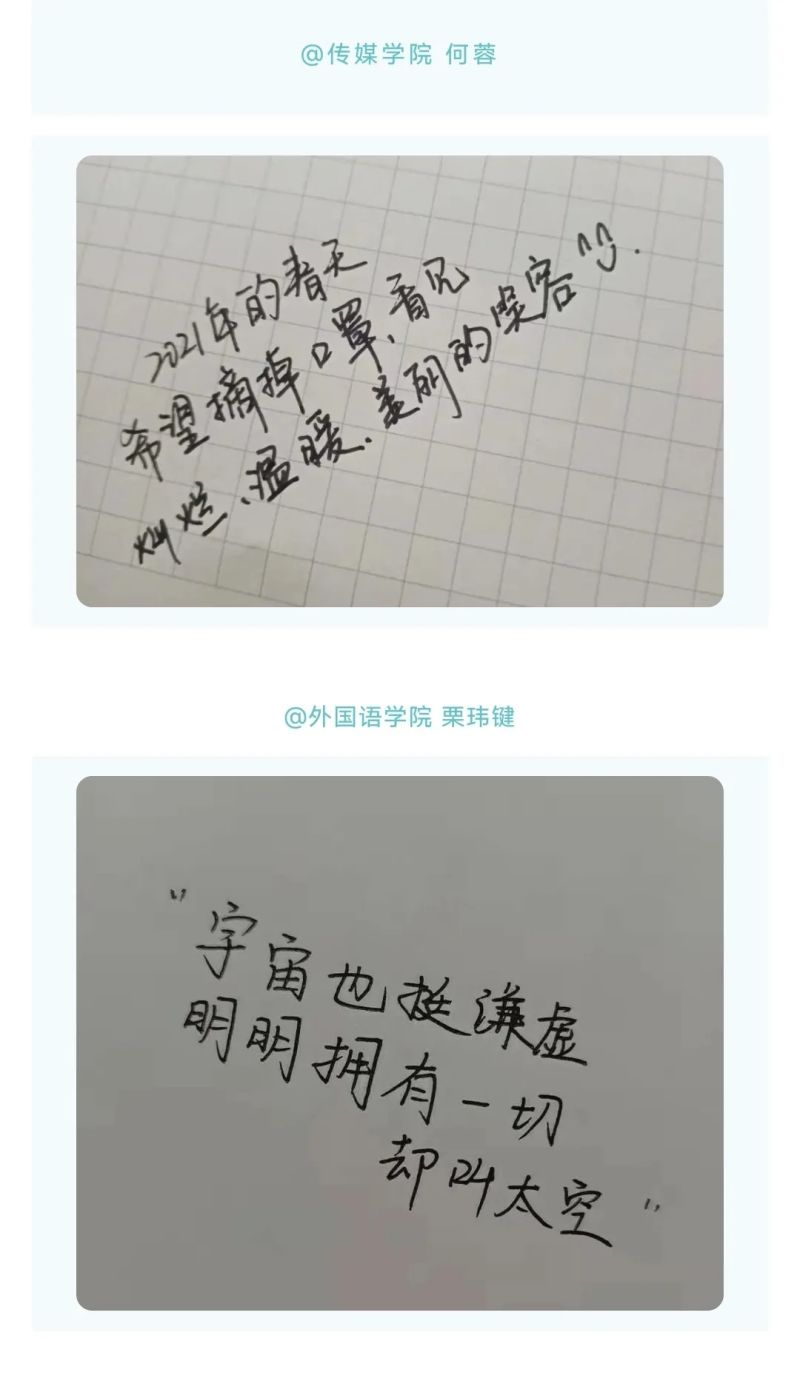 @传媒学院 何蓉
2021年的春天
希望摘掉口罩,看见
灿烂、温暖、美丽的笑容
@外国语学院 栗玮键
"宇宙也挺谦虚
明明拥有一切
却叫太空"